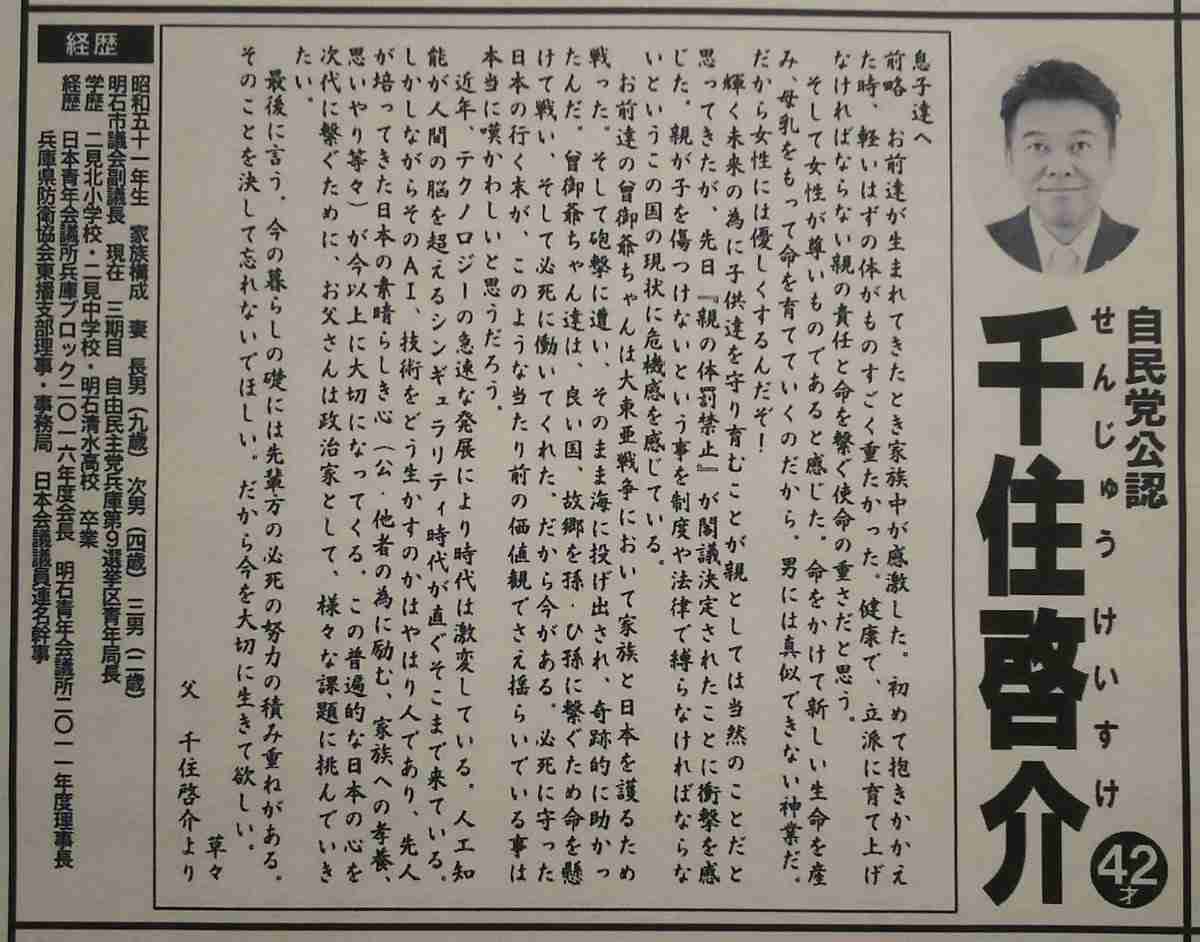 自民党公認
せんじゅうけいすけ
千住啓介
42才
息子達へ
前略　お前達が生まれてきたとき家族中が感激した。初めて抱きかかえ
た時、軽いはずの体がものすごく重たかった。健康で、立派に育て上げ
なければならない親の責任と命を繋ぐ使命の重さだと思う。
そして女性が尊いものであると感じた。命をかけて新しい生命を産
み、母乳をもって命を育てていくのだから、男には真似できない神業だ。
だから女性には優しくするんだぞ！
輝く未来の為に子供達を守り育むことが親としては当然のことだと
思ってきたが、先日『親の体罰禁止』が閣議決定されたことに衝撃を感
じた。親が子を傷つけないという事を制度や法律で縛らなければならな
いというこの国の現状に危機感を感じている。
お前達の曾御爺ちゃんは大東亜戦争において家族と日本を護るため
戦った。そして砲撃に遭い、そのまま海に投げ出され、奇跡的に助かっ
たんだ。曾御爺ちゃん達は、良い国、故郷を孫・ひ孫に繋ぐため命を懸
けて戦い、そして必死に働いてくれた。だから今がある。必死に守った
日本の行く末が、このような当たり前の価値観でさえ揺らいでいる事は
本当に嘆かわしいと思うだろう。
近年、テクノロジーの急速な発展により時代は激変している。人工知
能が人間の脳を超えるシンギュラリティ時代が直ぐそこまで来ている。
しかしながらそのＡＩ、技術をどう生かすのかはやはり人であり、先人
が培ってきた日本の素晴らしき心（公・他者の為に励む、家族への孝養、
思いやり等々）が今以上に大切になってくる。この普遍的な日本の心を
次代に繋ぐために、お父さんは政治家として、様々な課題に挑んでいき
たい。
最後に言う。今の暮らしの礎には先輩方の必死の努力の積み重ねがある。
そのことを決して忘れないでほしい。だから今を大切に生きて欲しい。
草々
父　千住啓介より
経歴
昭和五十一年生　家族構成　妻　長男（九歳）　次男（四歳）　三男（二歳）
明石市議会副議長　現在　三期目　自由民主党兵庫第９選挙区青年局長
学歴　二見北小学校・二見中学校・明石清水高校　卒業
経歴　日本青年会議所兵庫ブロック二〇一六年度会長　明石青年会議所二〇一一年度理事長
兵庫県防衛協会東播支部理事・事務局　日本会議議員連名幹事